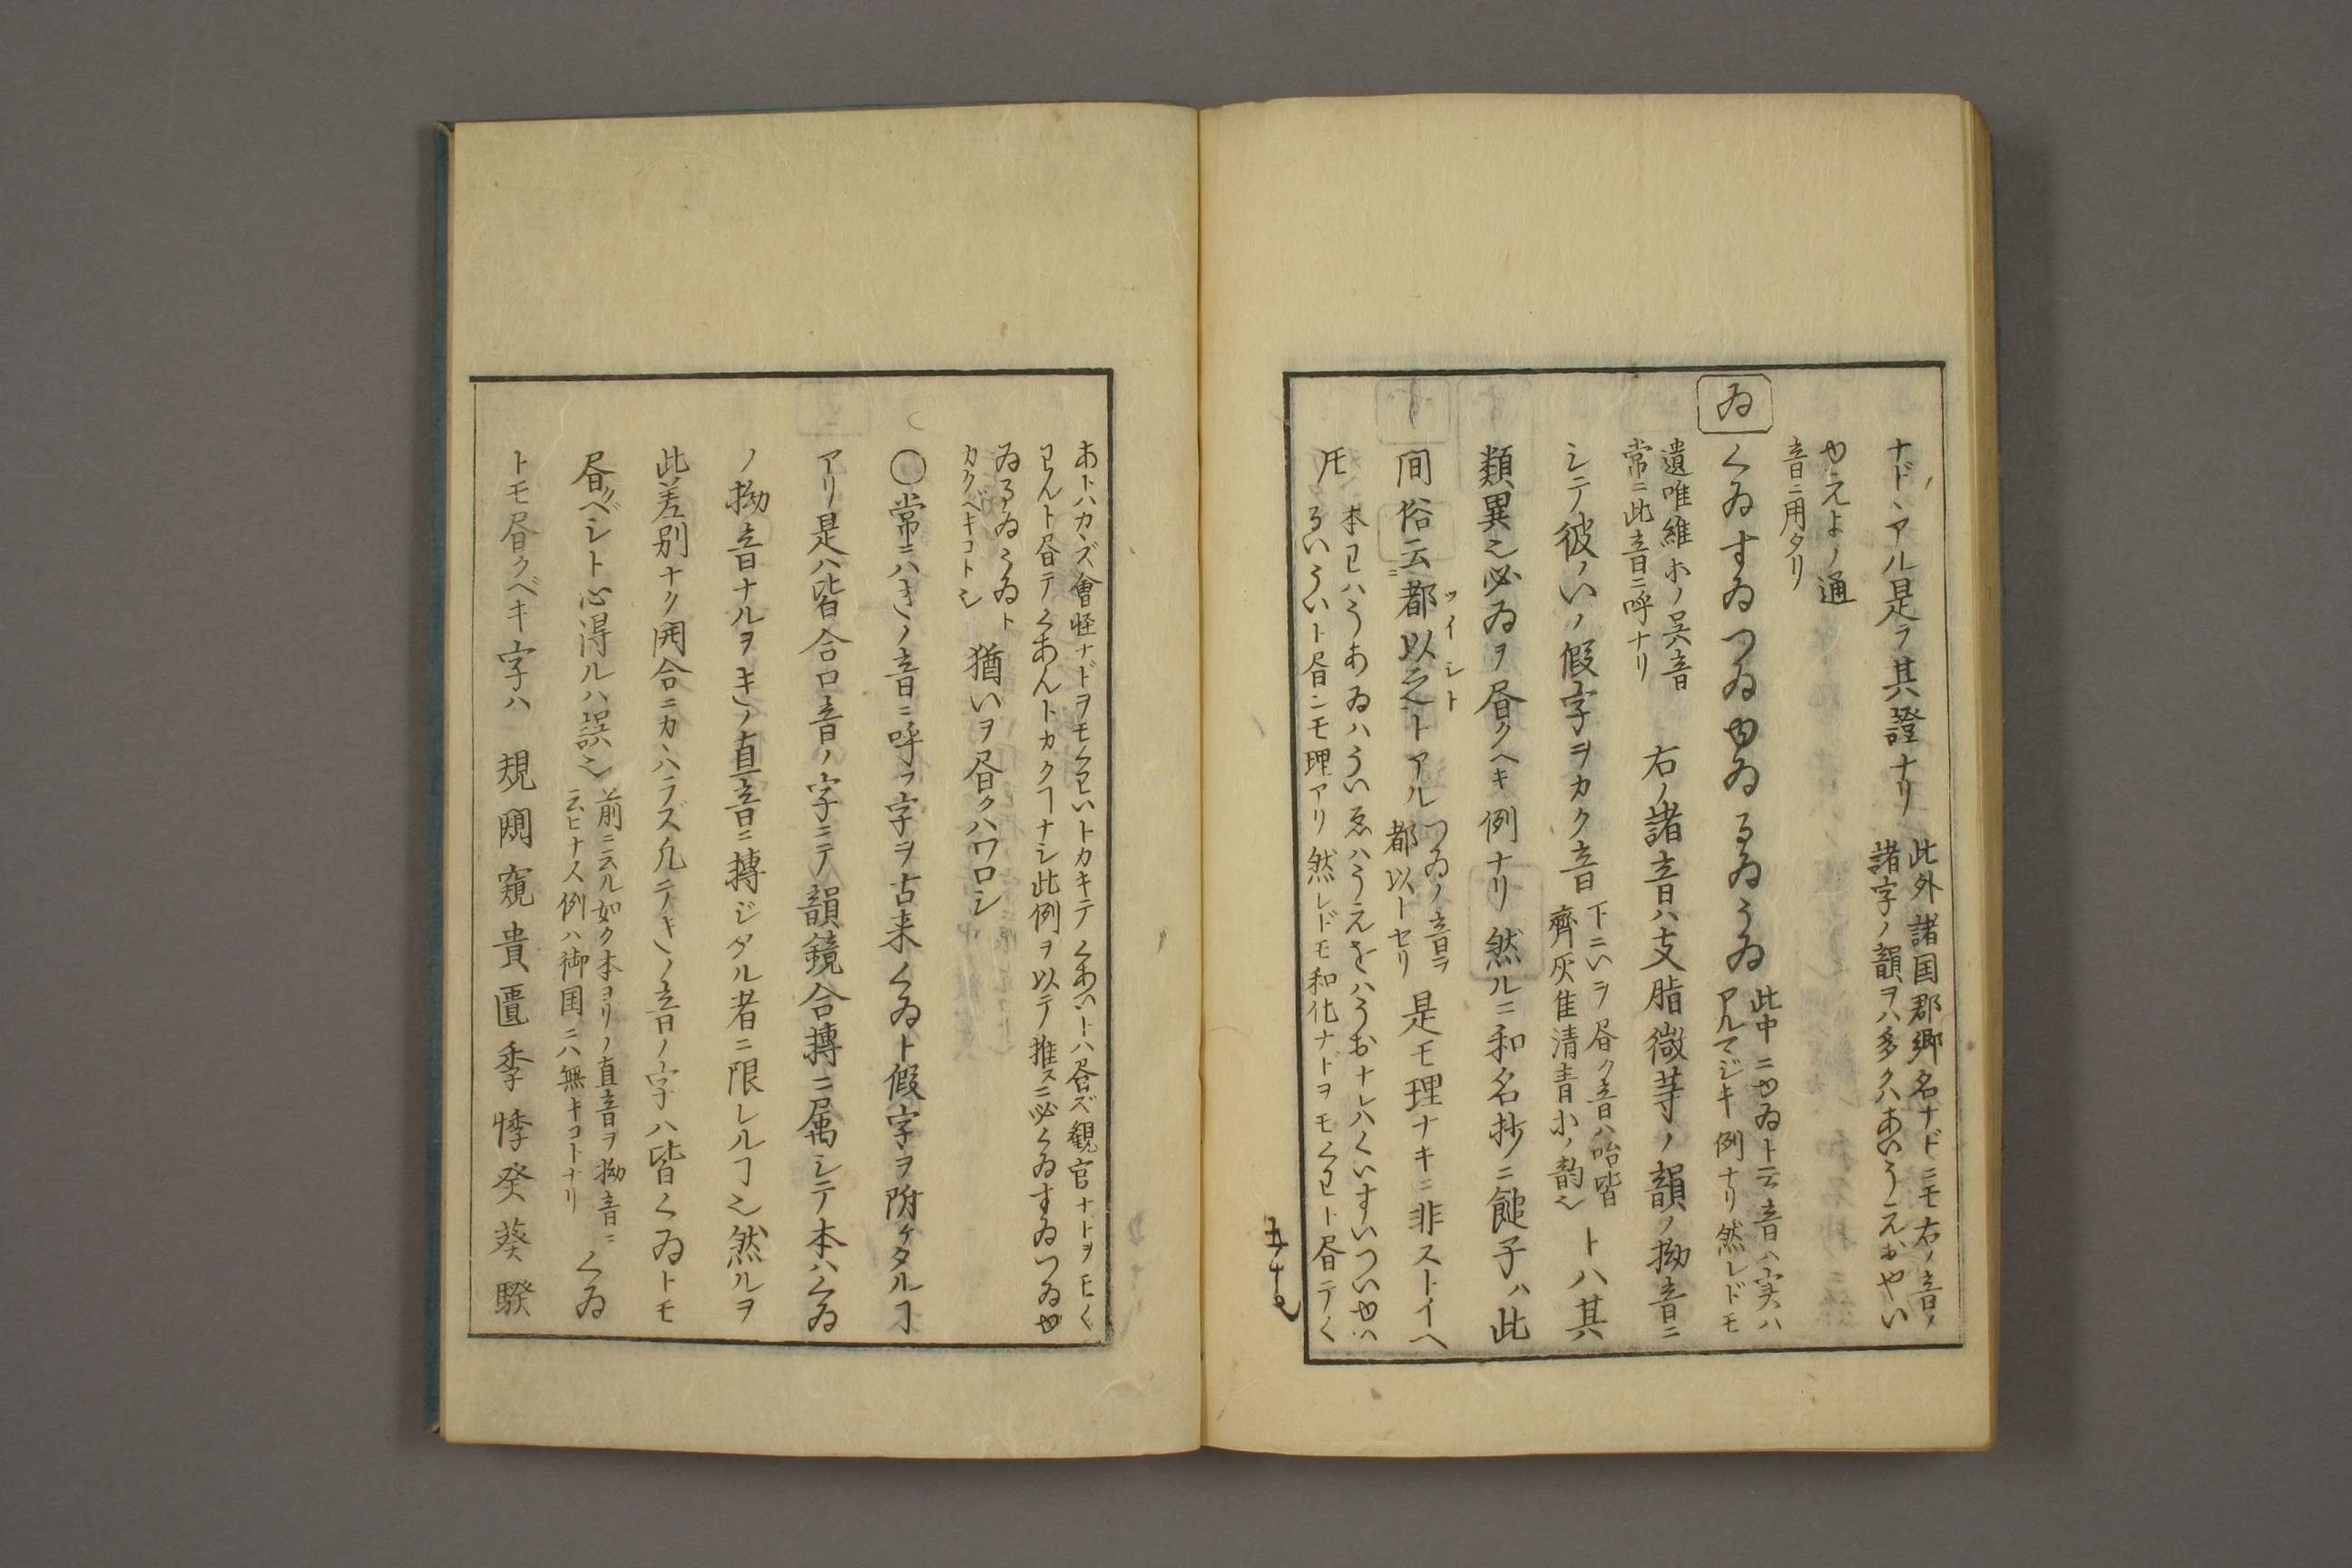 ナドヽアル是ラ其證ナリ
此外諸国郡郷名ナドニモ右ノ音ノ
諸字ノ韻ヲハ多クハあいうえおやい
ゆえよノ通
音ニ用タリ
ゐ
くゐすゐつゐゆゐるゐうゐ
此中ニゆゐト云音ハ実ハ
アルマジキ例ナリ然レドモ
遺唯維ホノ呉音
常ニ此音ニ呼ナリ
右ノ諸音ハ支脂微等ノ韻ノ拗音ニ
シテ彼ノいノ假字ヲカク音
下ニいヲ昼ク音ハ咍皆
齊灰隹清青ホノ韵也
トハ其
類異也必ゐヲ昼クヘキ例ナリ然ルニ和名抄ニ䭔子ハ此
間俗云都以之トアル
ツイシト
つゐノ音ヲ
都以トセリ
是モ理ナキニ非ストイヘ
𪜈
本わハうあゐハういゑハうえをハうおナレハくいすいついゆい
るいういト昼ンモ理アリ然レドモ和化ナドヲモくわト昼テく
五十七
あトハカヽズ會怪ナドヲモくわいトカキテくあいトハ昼ズ観官ナトヲモく
わんト昼テくあんトカクヿナシ此例ヲ以テ推スニ必くゐすゐつゐゆ
ゐるゐうゐト
カクベキコト也
猶いヲ昼クハワロシ
〇常ニハきノ音ニ呼フ字ヲ古来くゐト假字ヲ附ケタルヿ
アリ是ハ皆合口音ノ字ニテ韻鏡合轉ニ属シテ本ハくゐ
ノ拗音ナルヲキノ直音ニ轉ジタル者ニ限レルヿ也然ルヲ
此差別ナク開合ニカヽハラズ凡テキノ音ノ字ハ皆くゐトモ
昼クベシト心得ルハ誤也
前ニ云ル如ク本ヨリノ直音ヲ拗音ニ
云ヒナス例ハ御国ニハ無キコトナリ
くゐ
トモ昼クベキ字ハ 規闚窺貴匱季悸癸葵騤